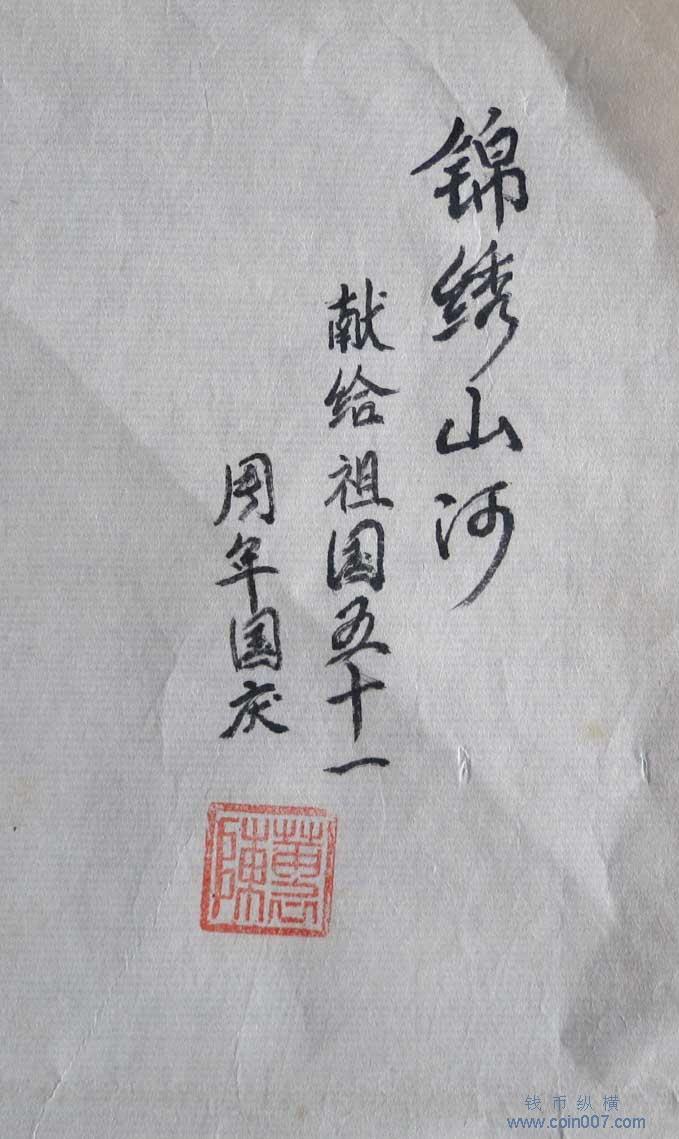 锦绣山河
献给祖国五十一
周年国庆
钱币纵横
www.coin007.com